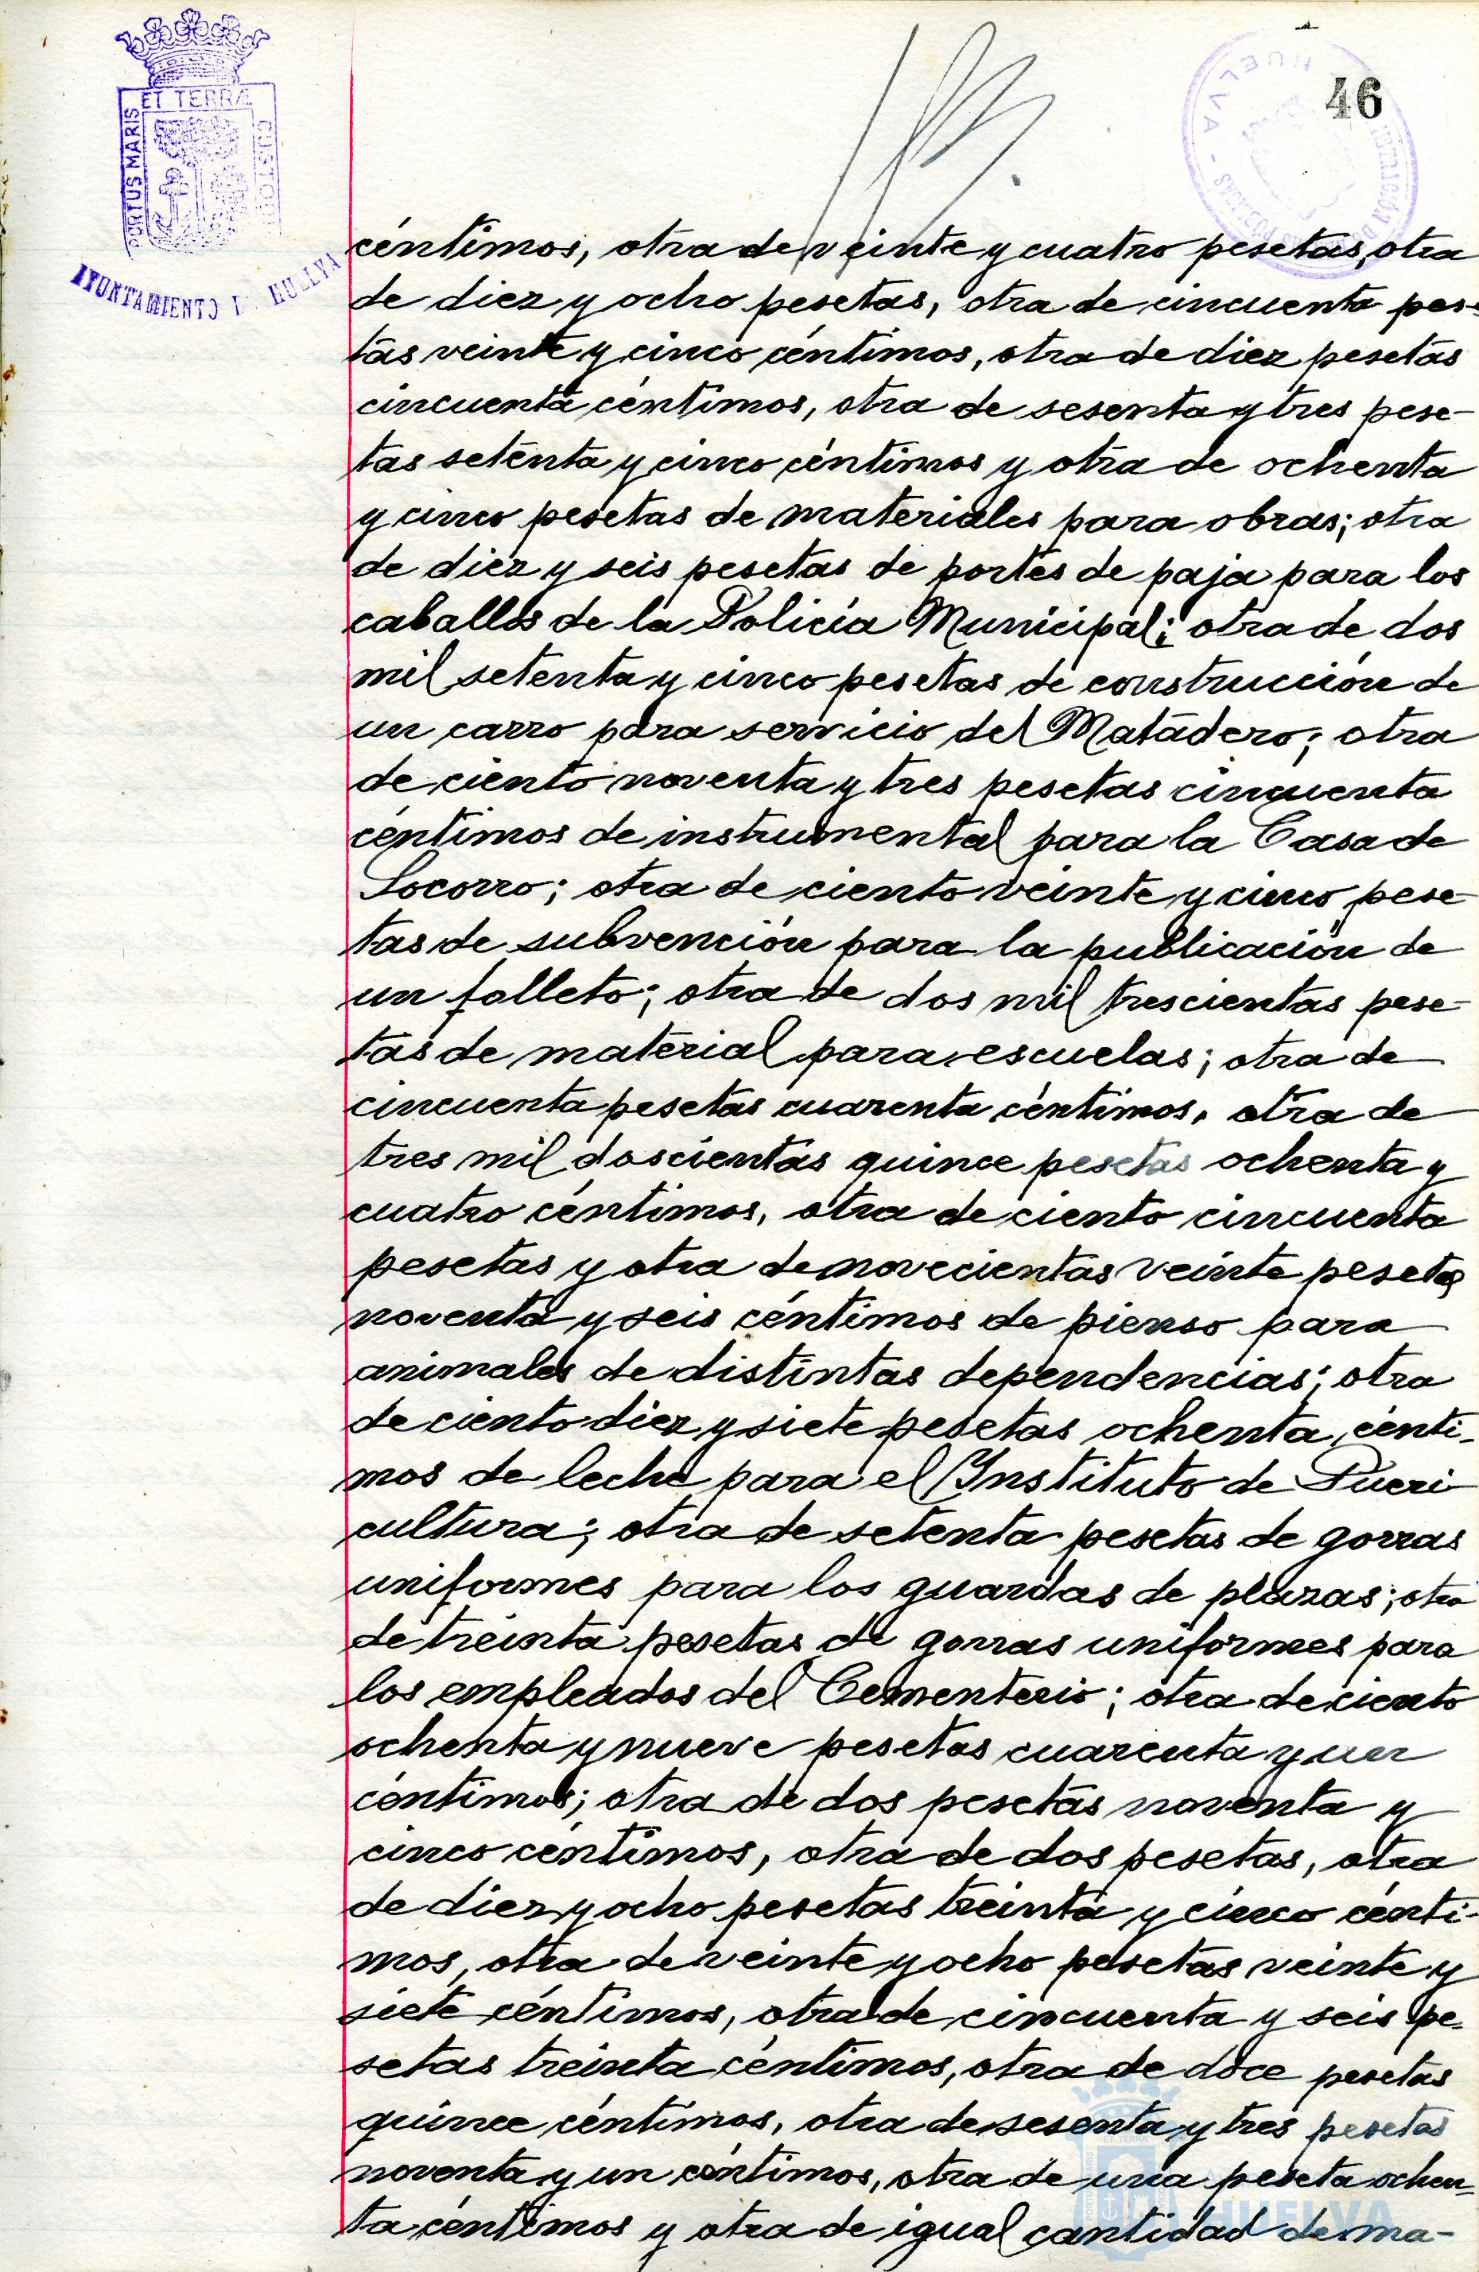 46
ET TERRÆ
PORTUS MARIS
CUSTODIA
AYUNTAMIENTO DE HUELVA
HUELVA
céntimos, otra de veinte y cuatro pesetas, otra
de diez y ocho pesetas, otra de cincuenta pese-
tas veinte y cinco céntimos, otra de diez pesetas
cincuenta céntimos, otra de sesenta y tres pese-
tas setenta y cinco céntimos y otra de ochenta
y cinco pesetas de materiales para obras; otra
de diez y seis pesetas de portes de paja para los
caballos de la Policía Municipal; otra de dos
mil setenta y cinco pesetas de construcción de
un carro para servicio del Matadero; otra
de ciento noventa y tres pesetas cincuenta
céntimos de instrumental para la Casa de
Socorro; otra de ciento veinte y cinco pese-
tas de subvención para la publicación de
un folleto; otra de dos mil trescientas pese-
tas de material para escuelas; otra de
cincuenta pesetas cuarenta céntimos, otra de
tres mil doscientas quince pesetas ochenta y
cuatro céntimos, otra de ciento cincuenta
pesetas y otra de novecientas veinte pesetas
noventa y seis céntimos de pienso para
animales de distintas dependencias; otra
de ciento diez y siete pesetas ochenta cénti-
mos de leche para el Instituto de Pueri-
cultura; otra de setenta pesetas de gorras
uniformes para los guardas de plazas; otra
de treinta pesetas de gorras uniformes para
los empleados del Cementerio; otra de ciento
ochenta y nueve pesetas cuarenta y un
céntimos; otra de dos pesetas noventa y
cinco céntimos, otra de dos pesetas, otra
de diez y ocho pesetas treinta y cinco cénti-
mos, otra de veinte y ocho pesetas veinte y
siete céntimos, otra de cincuenta y seis pe-
setas treinta céntimos, otra de doce pesetas
quince céntimos, otra de sesenta y tres pesetas
noventa y un céntimos, otra de una peseta ochen-
ta céntimos y otra de igual cantidad de ma-
HUELVA